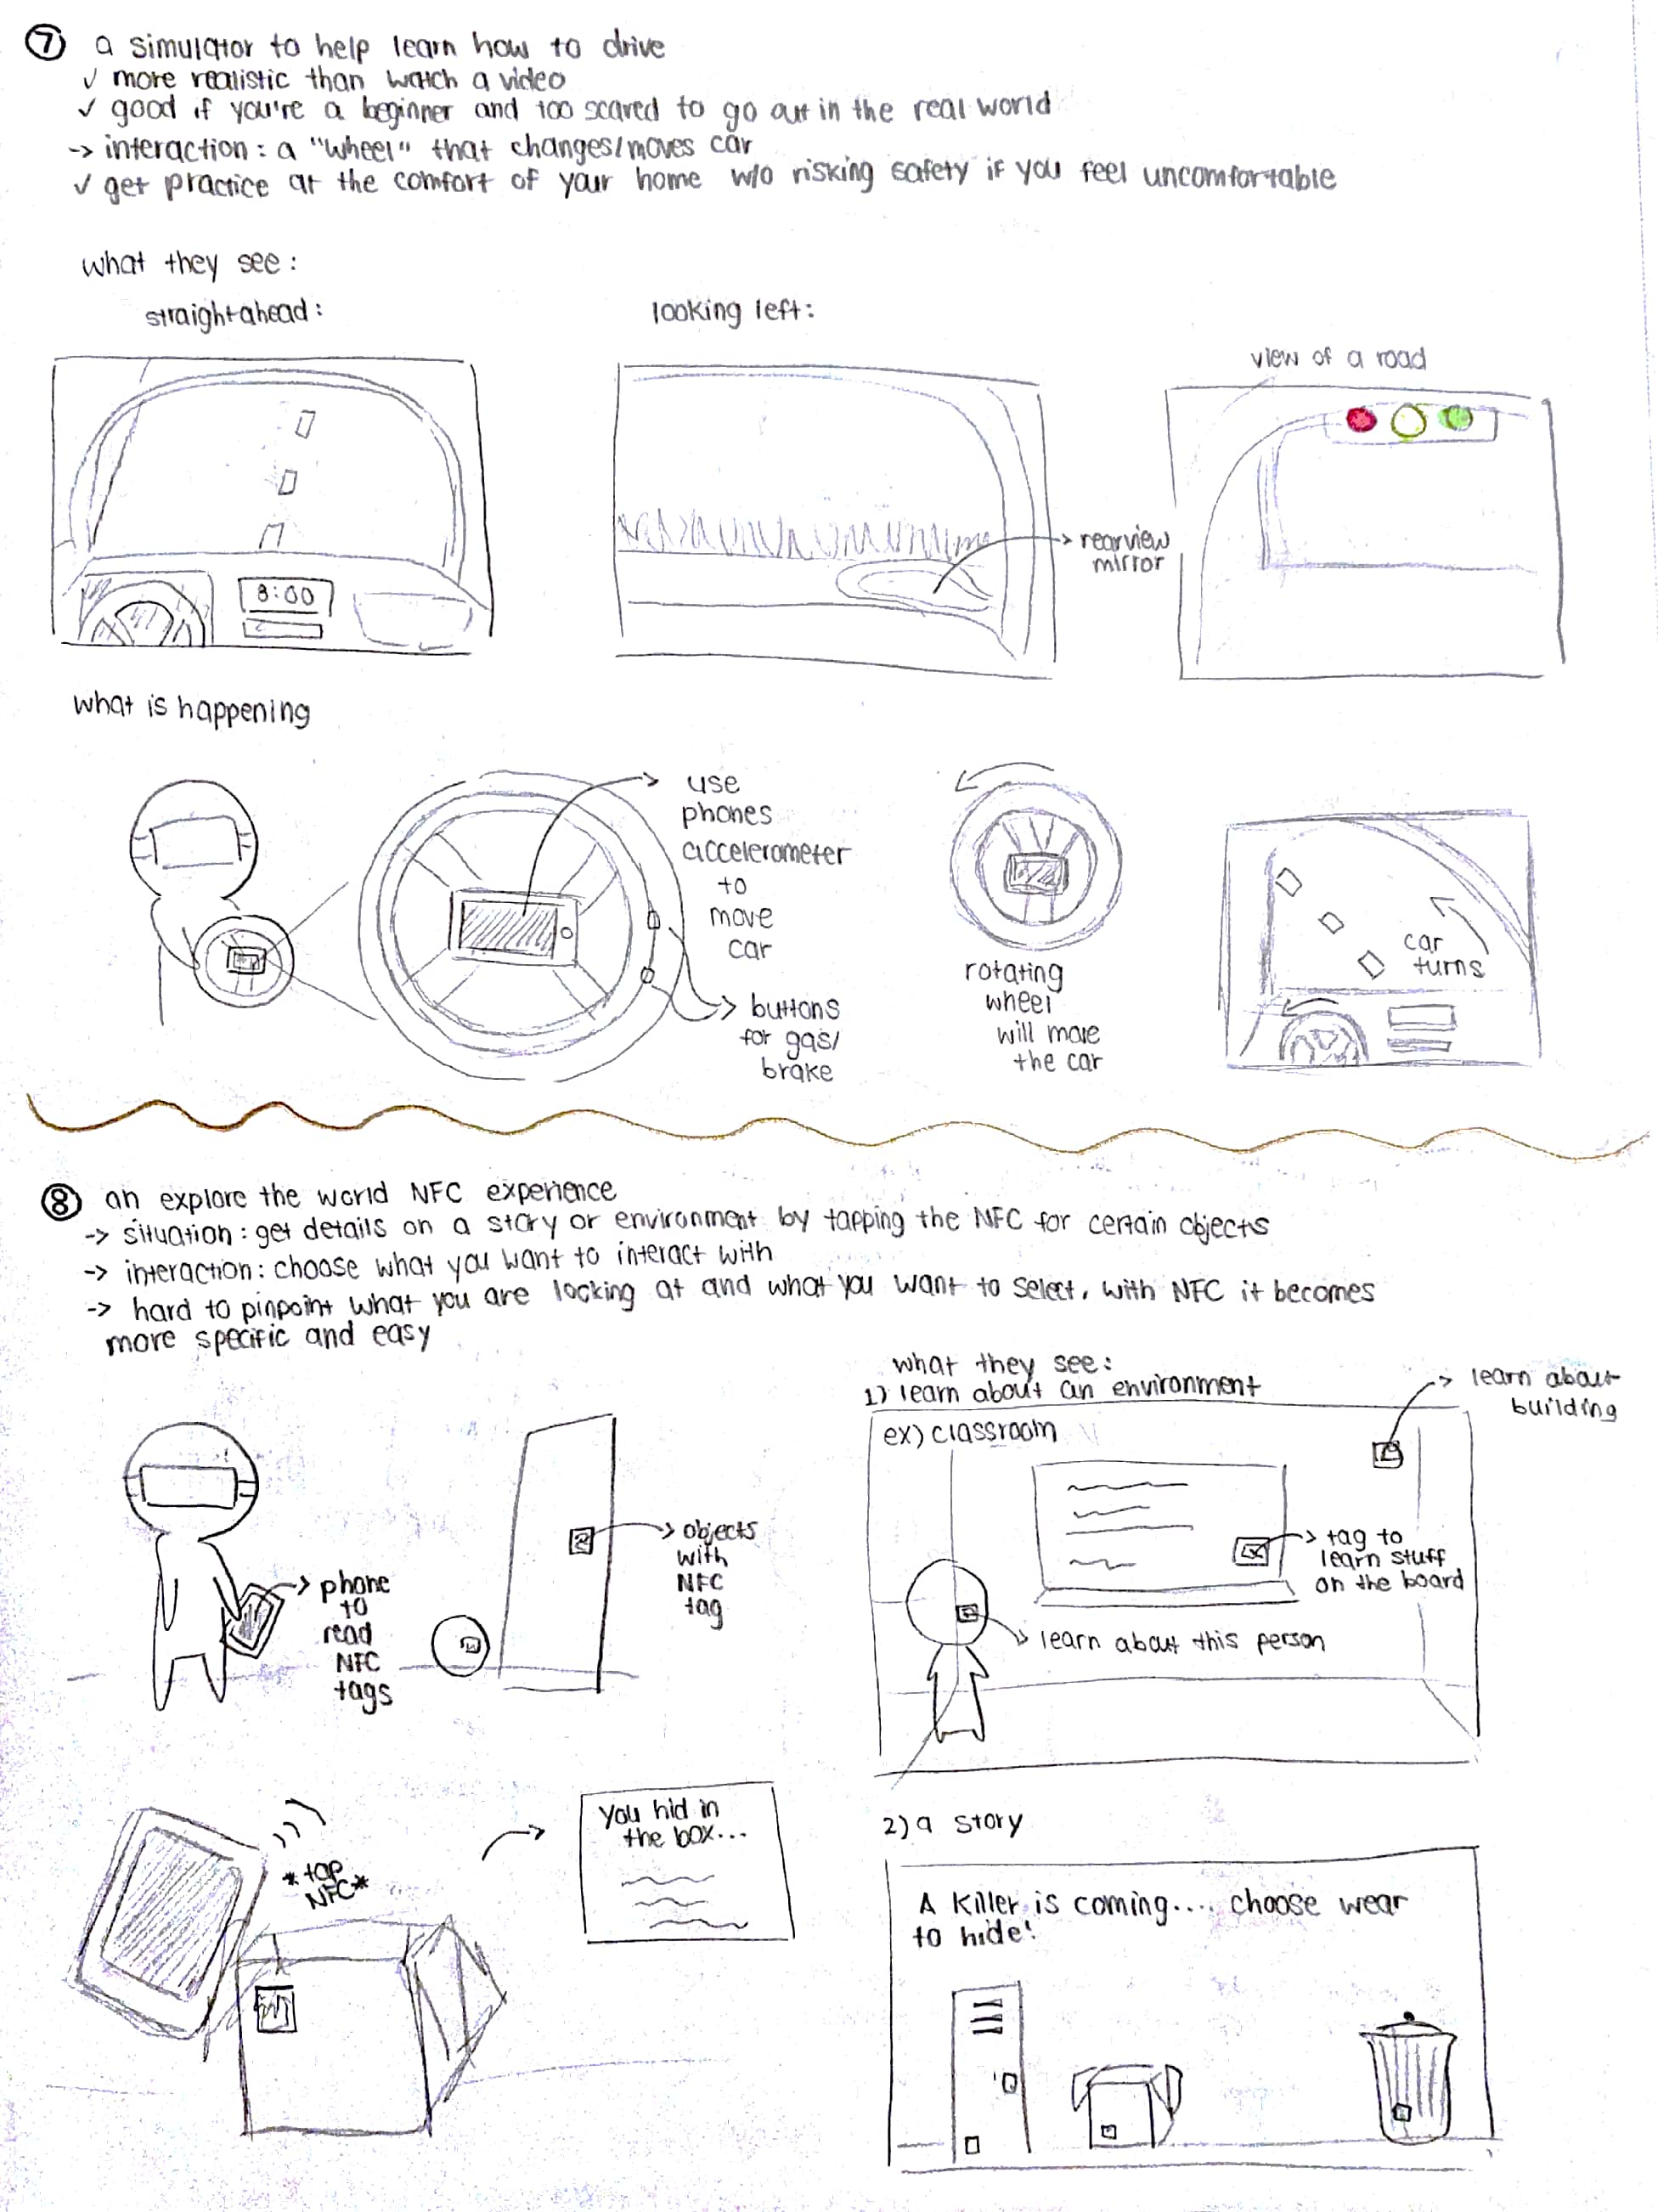 ⑦ a simulator to help learn how to drive
✓ more realistic than watch a video
✓ good if you're a beginner and too scared to go out in the real world
-> interaction: a "wheel" that changes/moves car
✓ get practice at the comfort of your home w/o risking safety if you feel uncomfortable
what they see:
straight ahead:
looking left:
view of a road
8:00
-> rearview
mirror
what is happening
use
phones
accelerometer
to
move
car
buttons
for gas/
brake
rotating
wheel
will move
the car
car
turns
⑧ an explore the world NFC experience
-> situation: get details on a story or environment by tapping the NFC for certain objects
-> interaction: choose what you want to interact with
-> hard to pinpoint what you are looking at and what you want to select, with NFC it becomes
more specific and easy
phone
to
read
NFC
tags
objects
with
NFC
tag
what they see:
1) learn about an environment
ex) classroom
learn about
building
tag to
learn stuff
on the board
learn about this person
*tap
NFC*
You hid in
the box...
2) a story
A Killer is coming.... choose wear
to hide!